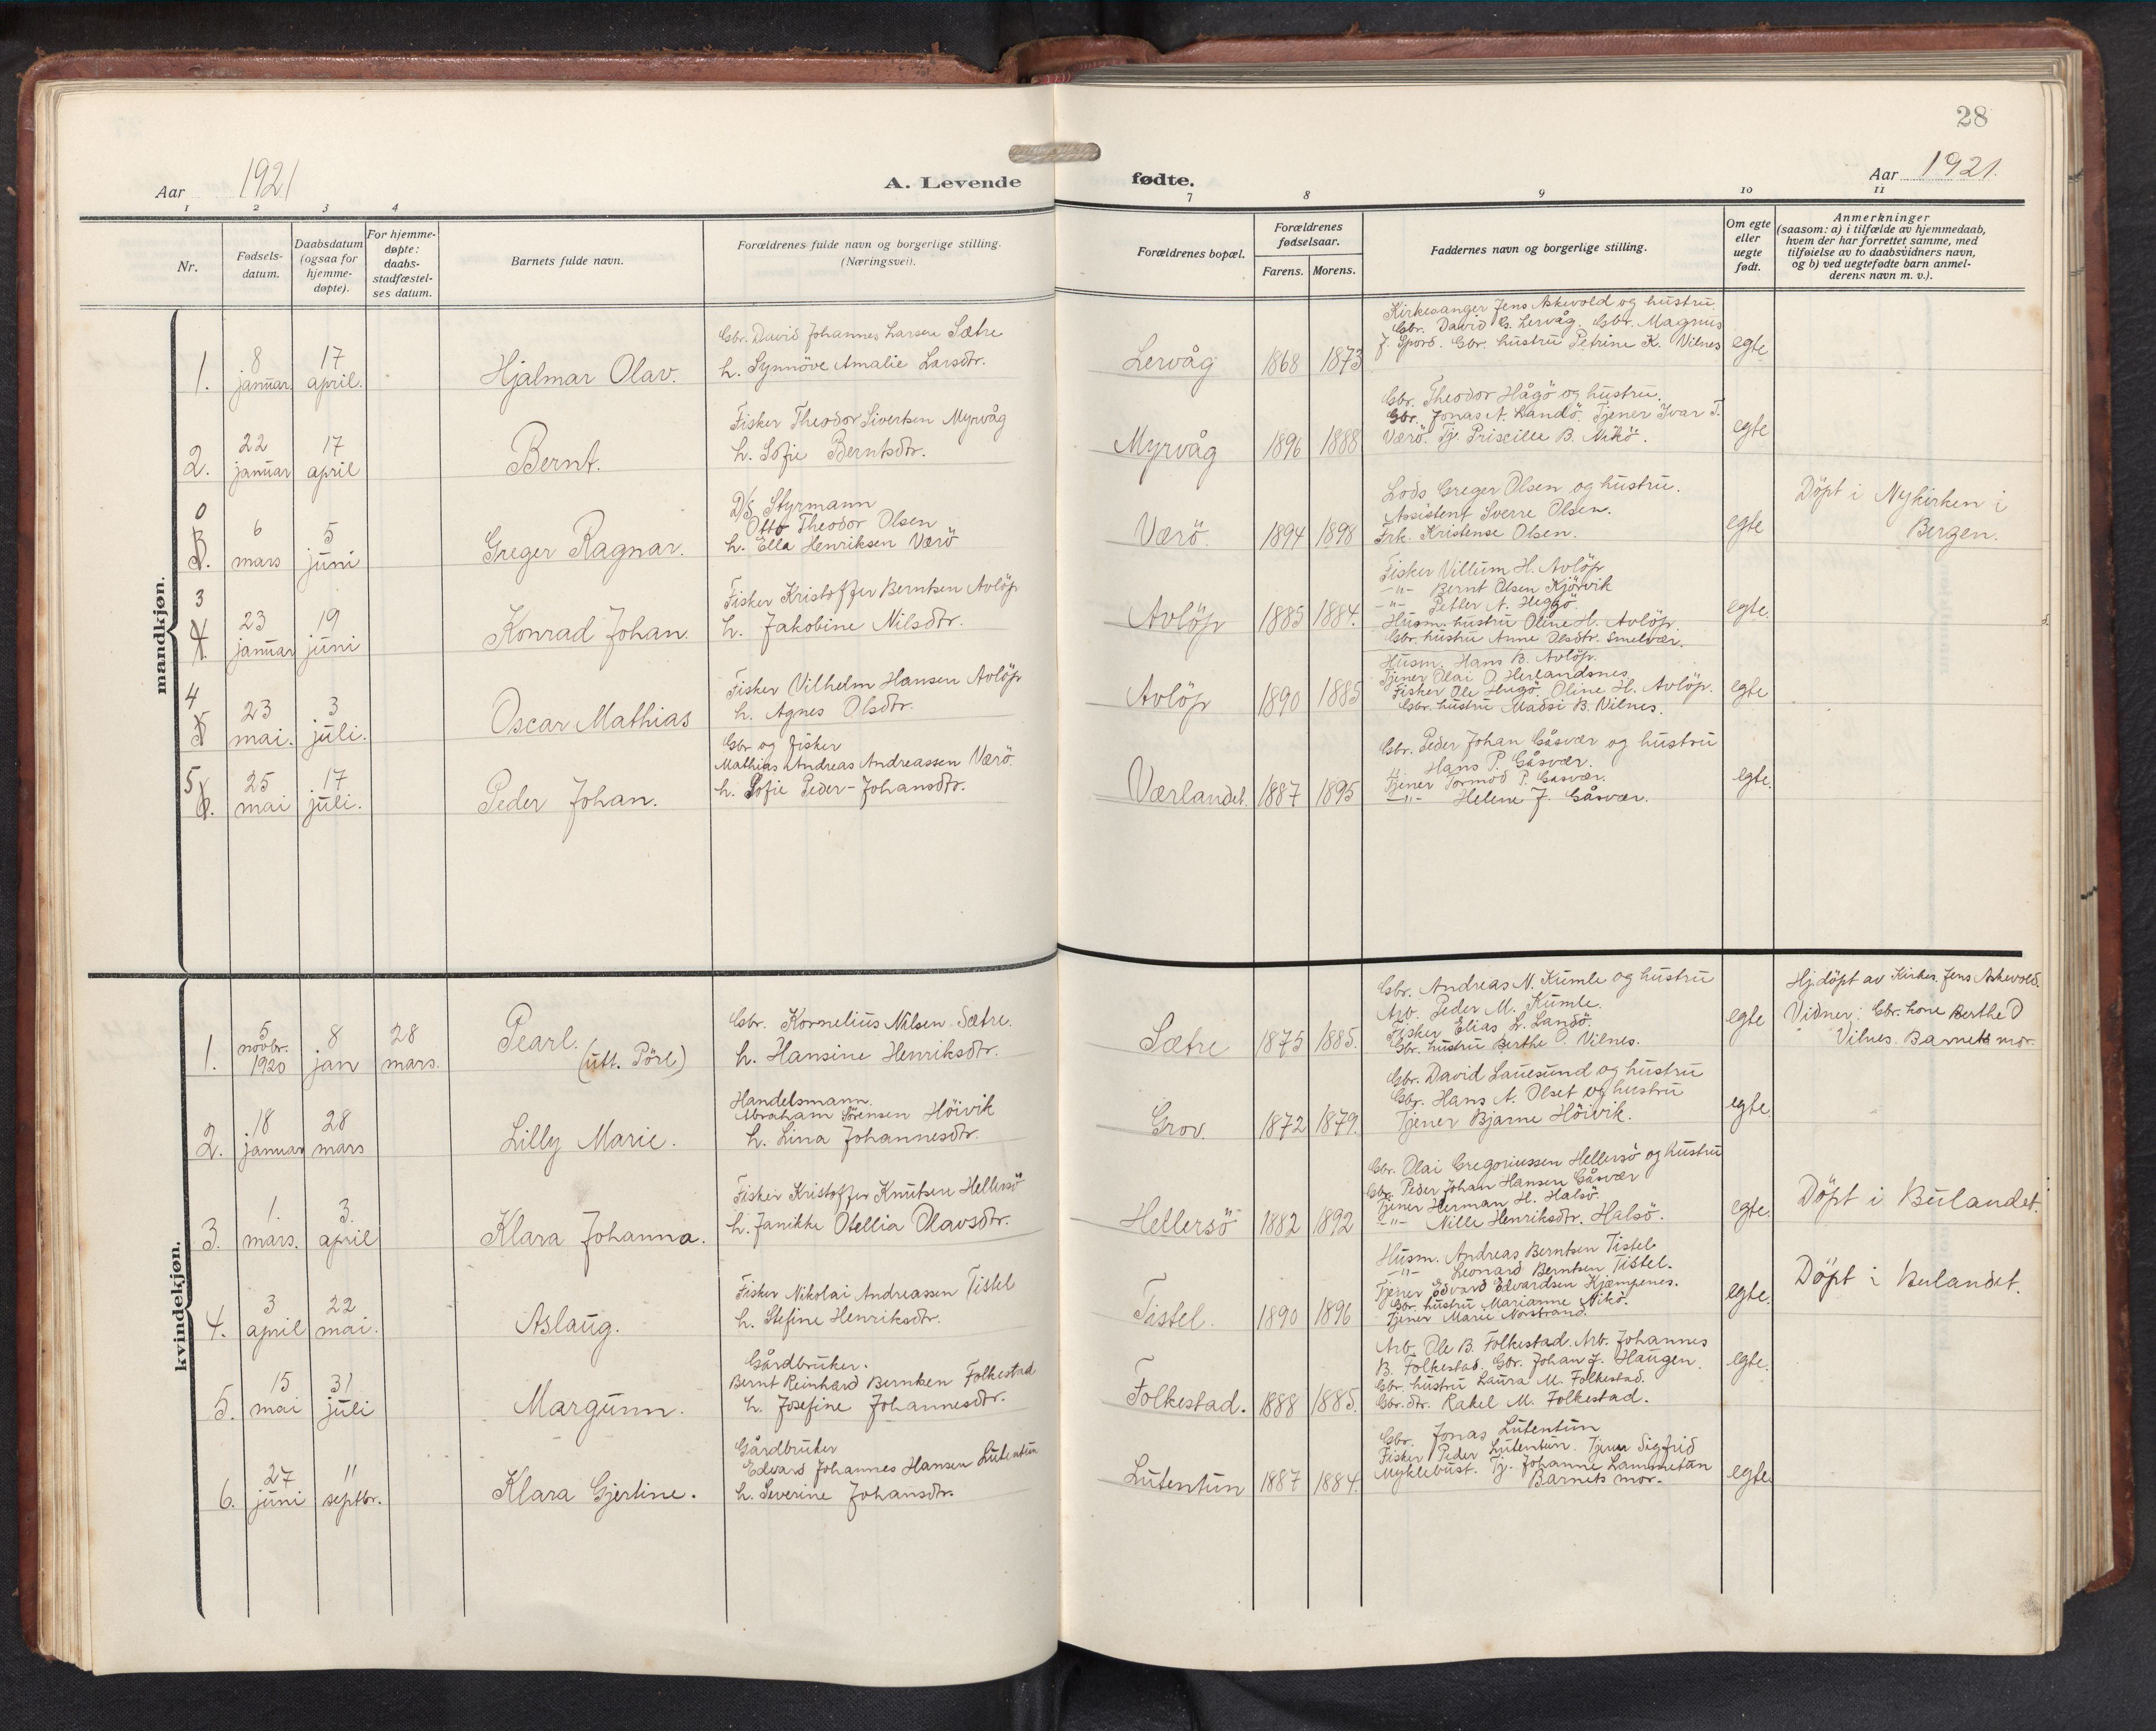 28
Aar 1921
A. Levende
fødte.
Aar 1921.
1 2 3 4
7 8 9 10 11
Nr.
Fødsels-
datum.
Daabsdatum
(ogsaa for
hjemme-
døpte).
For hjemme-
døpte:
daabs-
stadfæstel-
ses datum.
Barnets fulde navn.
Forældrenes fulde navn og borgerlige stilling.
(Næringsvei).
Forældrenes bopæl.
Forældrenes
fødselsaar.
Farens. Morens.
Faddernes navn og borgerlige stilling.
Om egte
eller
uegte
født.
Anmerkninger
(saasom: a) i tilfælde av hjemmedaab,
hvem der har forrettet samme, med
tilføielse av to daabsvidners navn,
og b) ved uegtefødte barn anmel-
derens navn m. v.).
mandkjøn.
1.
8
januar
17
april.
Hjalmar Olav.
Gbr. David Johannes Larsen Sætre
h. Synnöve Amalie Larsdtr.
Lervåg
1868
1873
Kirkesanger Jens Askevold og hustru.
Gbr. David G. Lervåg. Gbr. Magnus
J. Spord. Gbr. hustru Petrine K. Vilnes
egte
2.
22
januar
17
april
Bernt.
Fisker Theodor Sivertsen Myrvåg
h. Sofie Berntsdtr.
Myrvåg
1896
1888
Gbr. Theodor Hågö og hustru.
Gbr. Jonas A. Landö. Tjener Ivar T.
Værö. Tje Priscille B. Nikö.
egte
0
3.
6
mars
5
juni
Greger Ragnar.
D/S Styrmann
Otto Theodor Olsen
h. Ella Henriksen Værö
Værö.
1894
1898
Lods Greger Olsen og hustru.
Assistent Sverre Olsen.
Frk. Kristense Olsen.
egte
Döpt i Nykirken i
Bergen.
3
4.
23
januar
19
juni
Konrad Johan.
Fisker Kristoffer Berntsen Avlöp
h. Jakobine Nilsdtr.
Avlöp
1885
1884.
Fisker Villum H. Avlöp
-"- Bernt Olsen Kjörvik
-"- Petter A. Heggö.
Husm. hustru Oline H. Avlöp.
Gbr. hustru Anne Olsdtr. Smelvær.
egte.
4
5
23
mai.
3
juli.
Oscar Mathias
Fisker Vilhelm Hansen Avlöp
h. Agnes Olsdtr.
Avlöp
1890
1885
Husm. Hans B. Avlöp.
Tjener Olai O. Herlandsnes
Fisker Ole Hugö. Oline H. Avlöp.
Gbr. hustru Madsi B. Vilnes.
egte
5
6.
25
mai
17
juli.
Peder Johan.
Gbr og fisker
Mathias Andreas Andreassen Værö.
h. Sofie Peder-Johansdtr.
Værlandet.
1887
1895
Gbr. Peder Johan Gåsvær og hustru
" Hans P. Gåsvær.
Tjener Tormod P. Gåsvær.
-"- Helene J. Gåsvær.
egte.
kvindekjøn.
1.
5
novbr.
1920
8
jan
28
mars.
Pearl.
(utt. Pörl)
Gbr. Kornelius Nilsen Sætre.
h. Hansine Henriksdtr.
Sætre
1875
1885.
Gbr. Andreas N. Kumle og hustru
Arb. Peder M. Kumle.
Fisker Elias L. Landö.
Gbr. hustru Berthe O. Vilnes.
egte
Hj.döpt av Kirkes. Jens Askevold.
Vidner: Gbr. kone Berthe O
Vilnes. Barnets mor.
2.
18
januar
28
mars
Lilly Marie.
Handelsmann.
Abraham Sörensen Höivik
h. Lina Johannesdtr.
Grov.
1872
1879.
Gbr. David Lauesund og hustru
Gbr. Hans A. Olset og hustru
Tjener Bjarne Höivik.
egte.
3.
1.
mars.
3.
april
Klara Johanna.
Fisker Kristoffer Knutsen Hellersö
h. Janikke Otellia Olavsdtr.
Hellersö
1882
1892
Gbr. Olai Gregoriussen Hellersö og hustru
Gbr. Peder Johan Hansen Gåsvær
Tjener Herman H. Halsö.
-"- Nille Henriksdtr. Halsö.
egte.
Döpt i Bulandet.
4.
3
april
22
mai.
Aslaug.
Fisker Nikolai Andreassen Tistel
h. Stefine Henriksdtr.
Tistel.
1890
1896
Husm. Andreas Berntsen Tistel
-"- Leonard Berntsen Tistel.
Tjener Edvard Edvardsen Kjempenes.
Gbr. hustru Marianne Nikö.
Tjener Marie Norstrand.
egte.
Döpt i Bulandet.
5.
15
mai
31
juli
Margunn.
Gårdbruker.
Bernt Reinhard Berntsen Folkestad
h. Josefine Johannesdtr.
Folkestad.
1888
1885.
Arb. Ole B. Folkestad. Arb. Johannes
B. Folkestad. Gbr. Johan J. Haugen.
Gbr. hustru Laura M. Folkestad.
Gbr.dtr. Rakel M. Folkestad.
egte.
6.
27
juni
11
septbr.
Klara Gjertine.
Gårdbruker
Edvard Johannes Hansen Lutentun
h. Severine Johansdtr.
Lutentun
1887
1884.
Gbr. Jonas Lutentun
Fisker Peder Lutentun. Tjener Sigfrid
Myklebust. Tj. Johanne Lammetun
Barnets mor.
egte